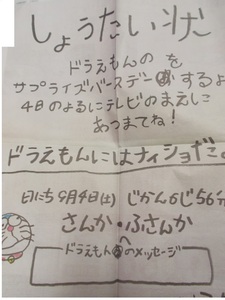 しょうたい状
ドラえもんの を
サプライズバースデーするよ
4日のよるにテレビのまえに
あつまてね!
ドラえもんにはナイショだ
日にち9月4日(土) じかん6じ56分
さんか・ふさんか
ドラえもんへのメッセージ